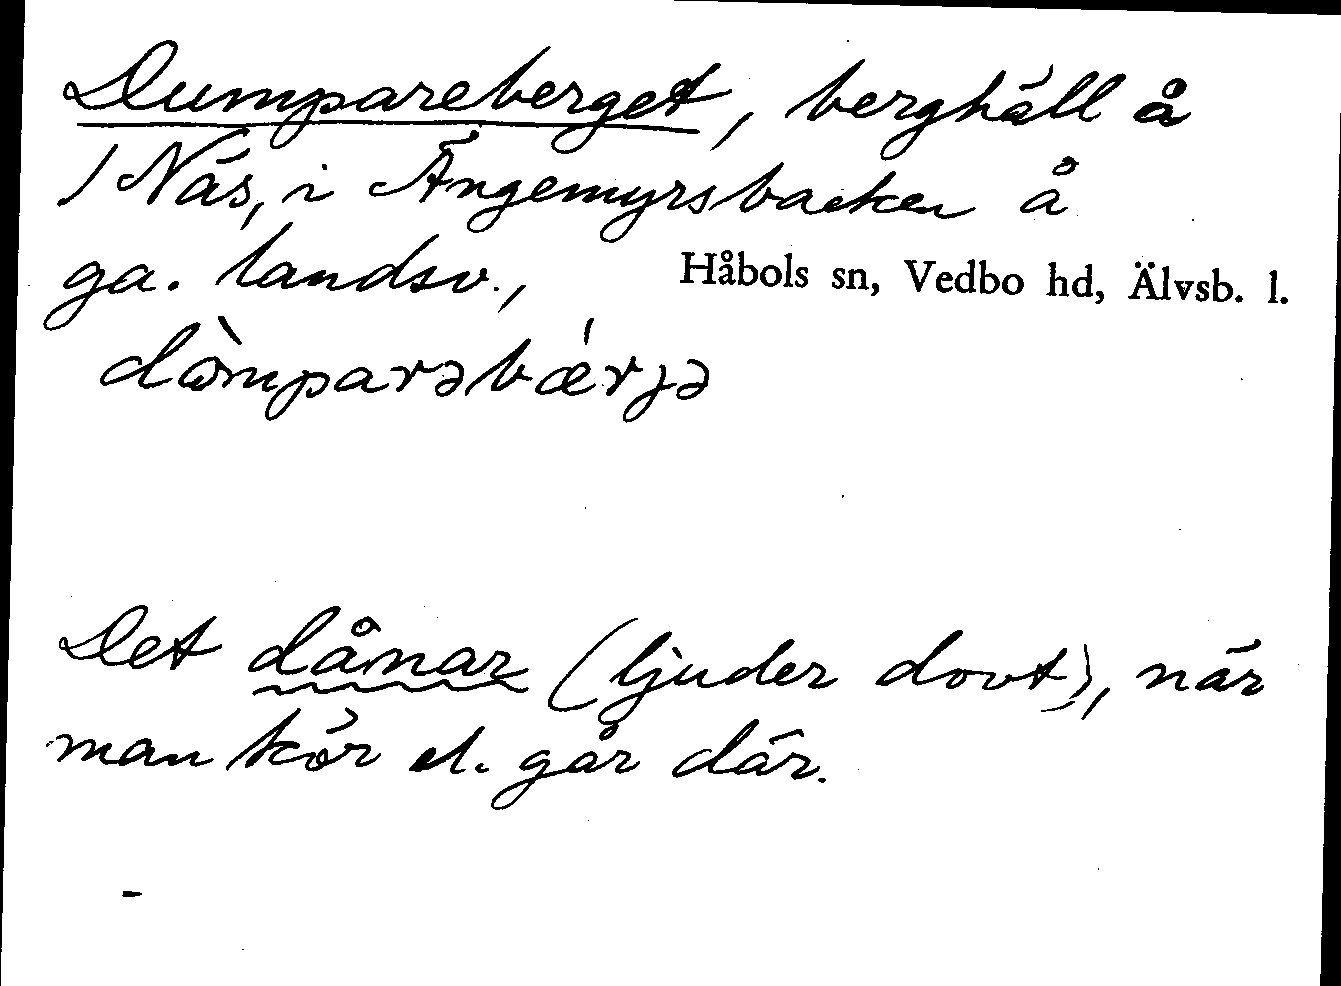 Dumpareberget, berghäll å
1 Näs, i Ängemyrsbacken å
ga. landsv., Håbols sn, Vedbo hd, Älvsb. l.
dòmparəbǽrjə
Det dånar (ljuder dovt), när
man kör el. går där.